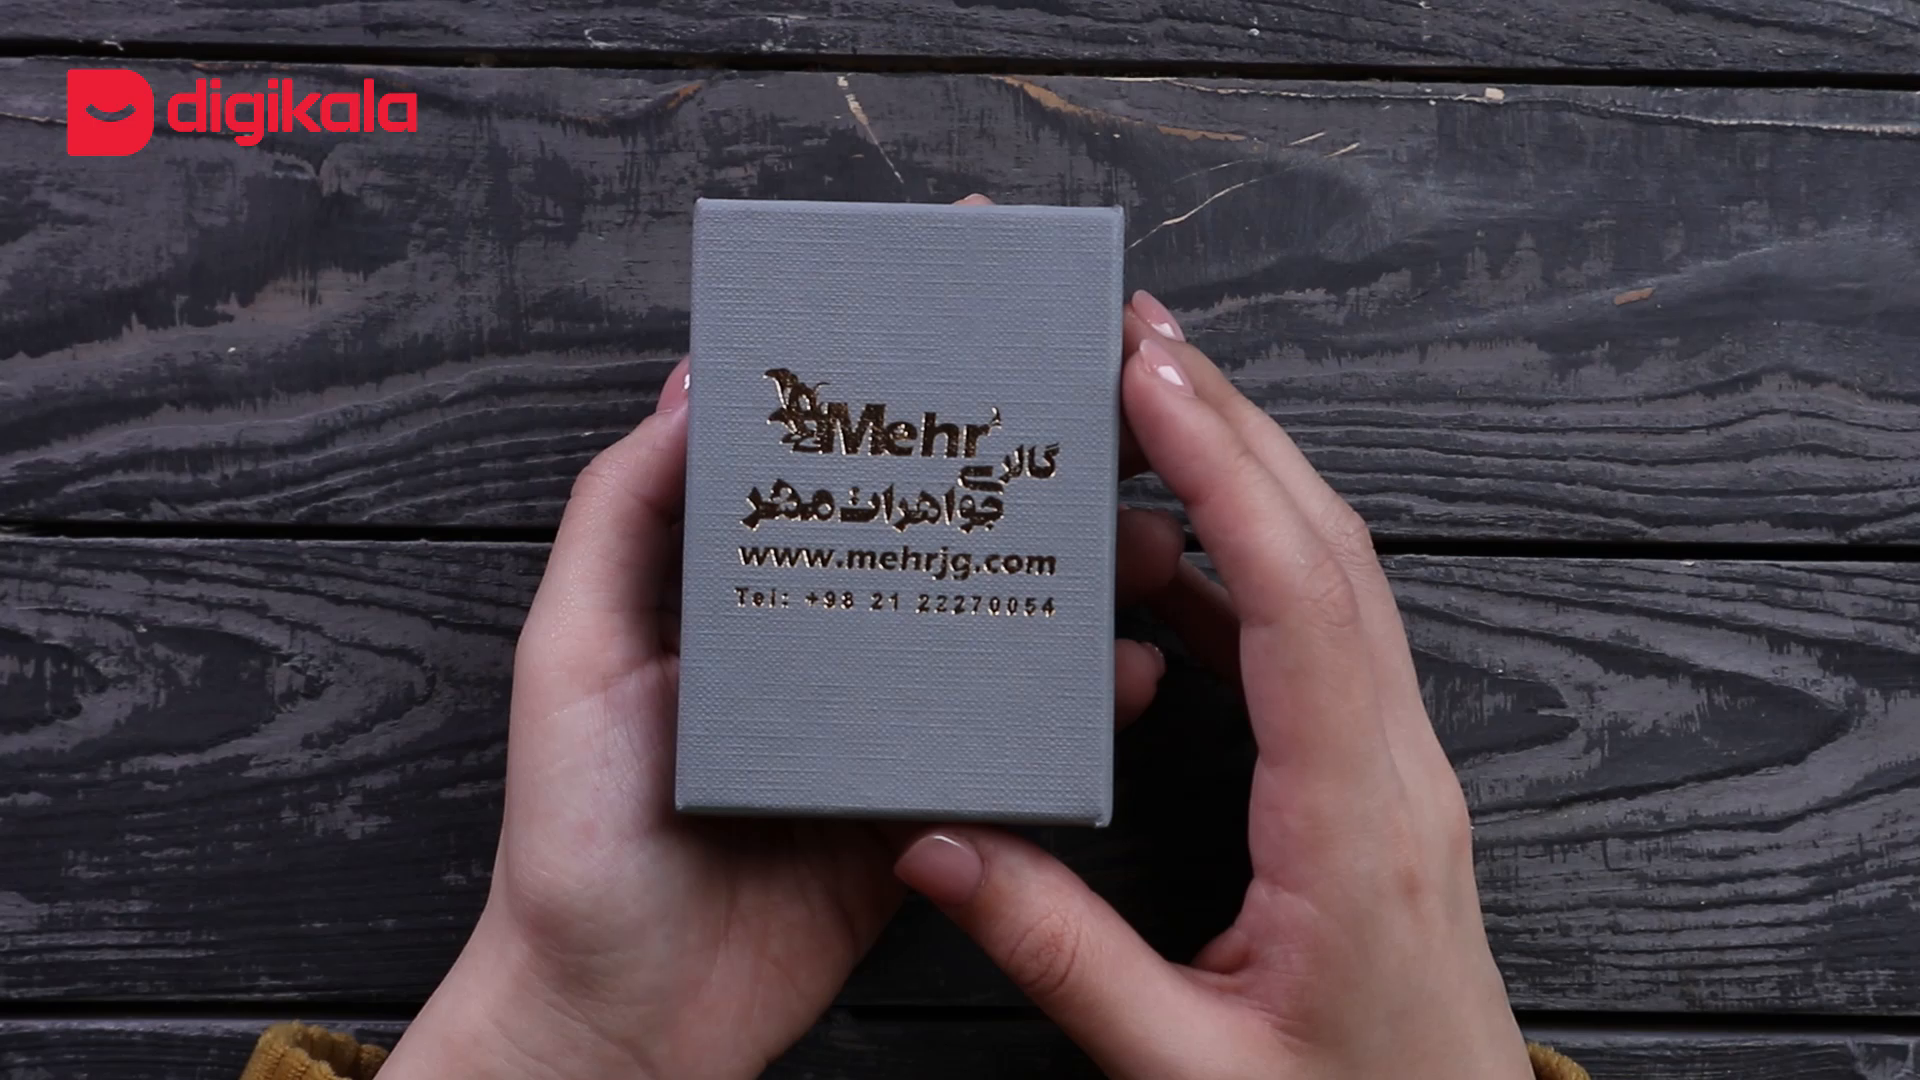 digikala
Mehr
گالری
جواهرات مهر
www.mehrjg.com
Tel: +98 21 22270054